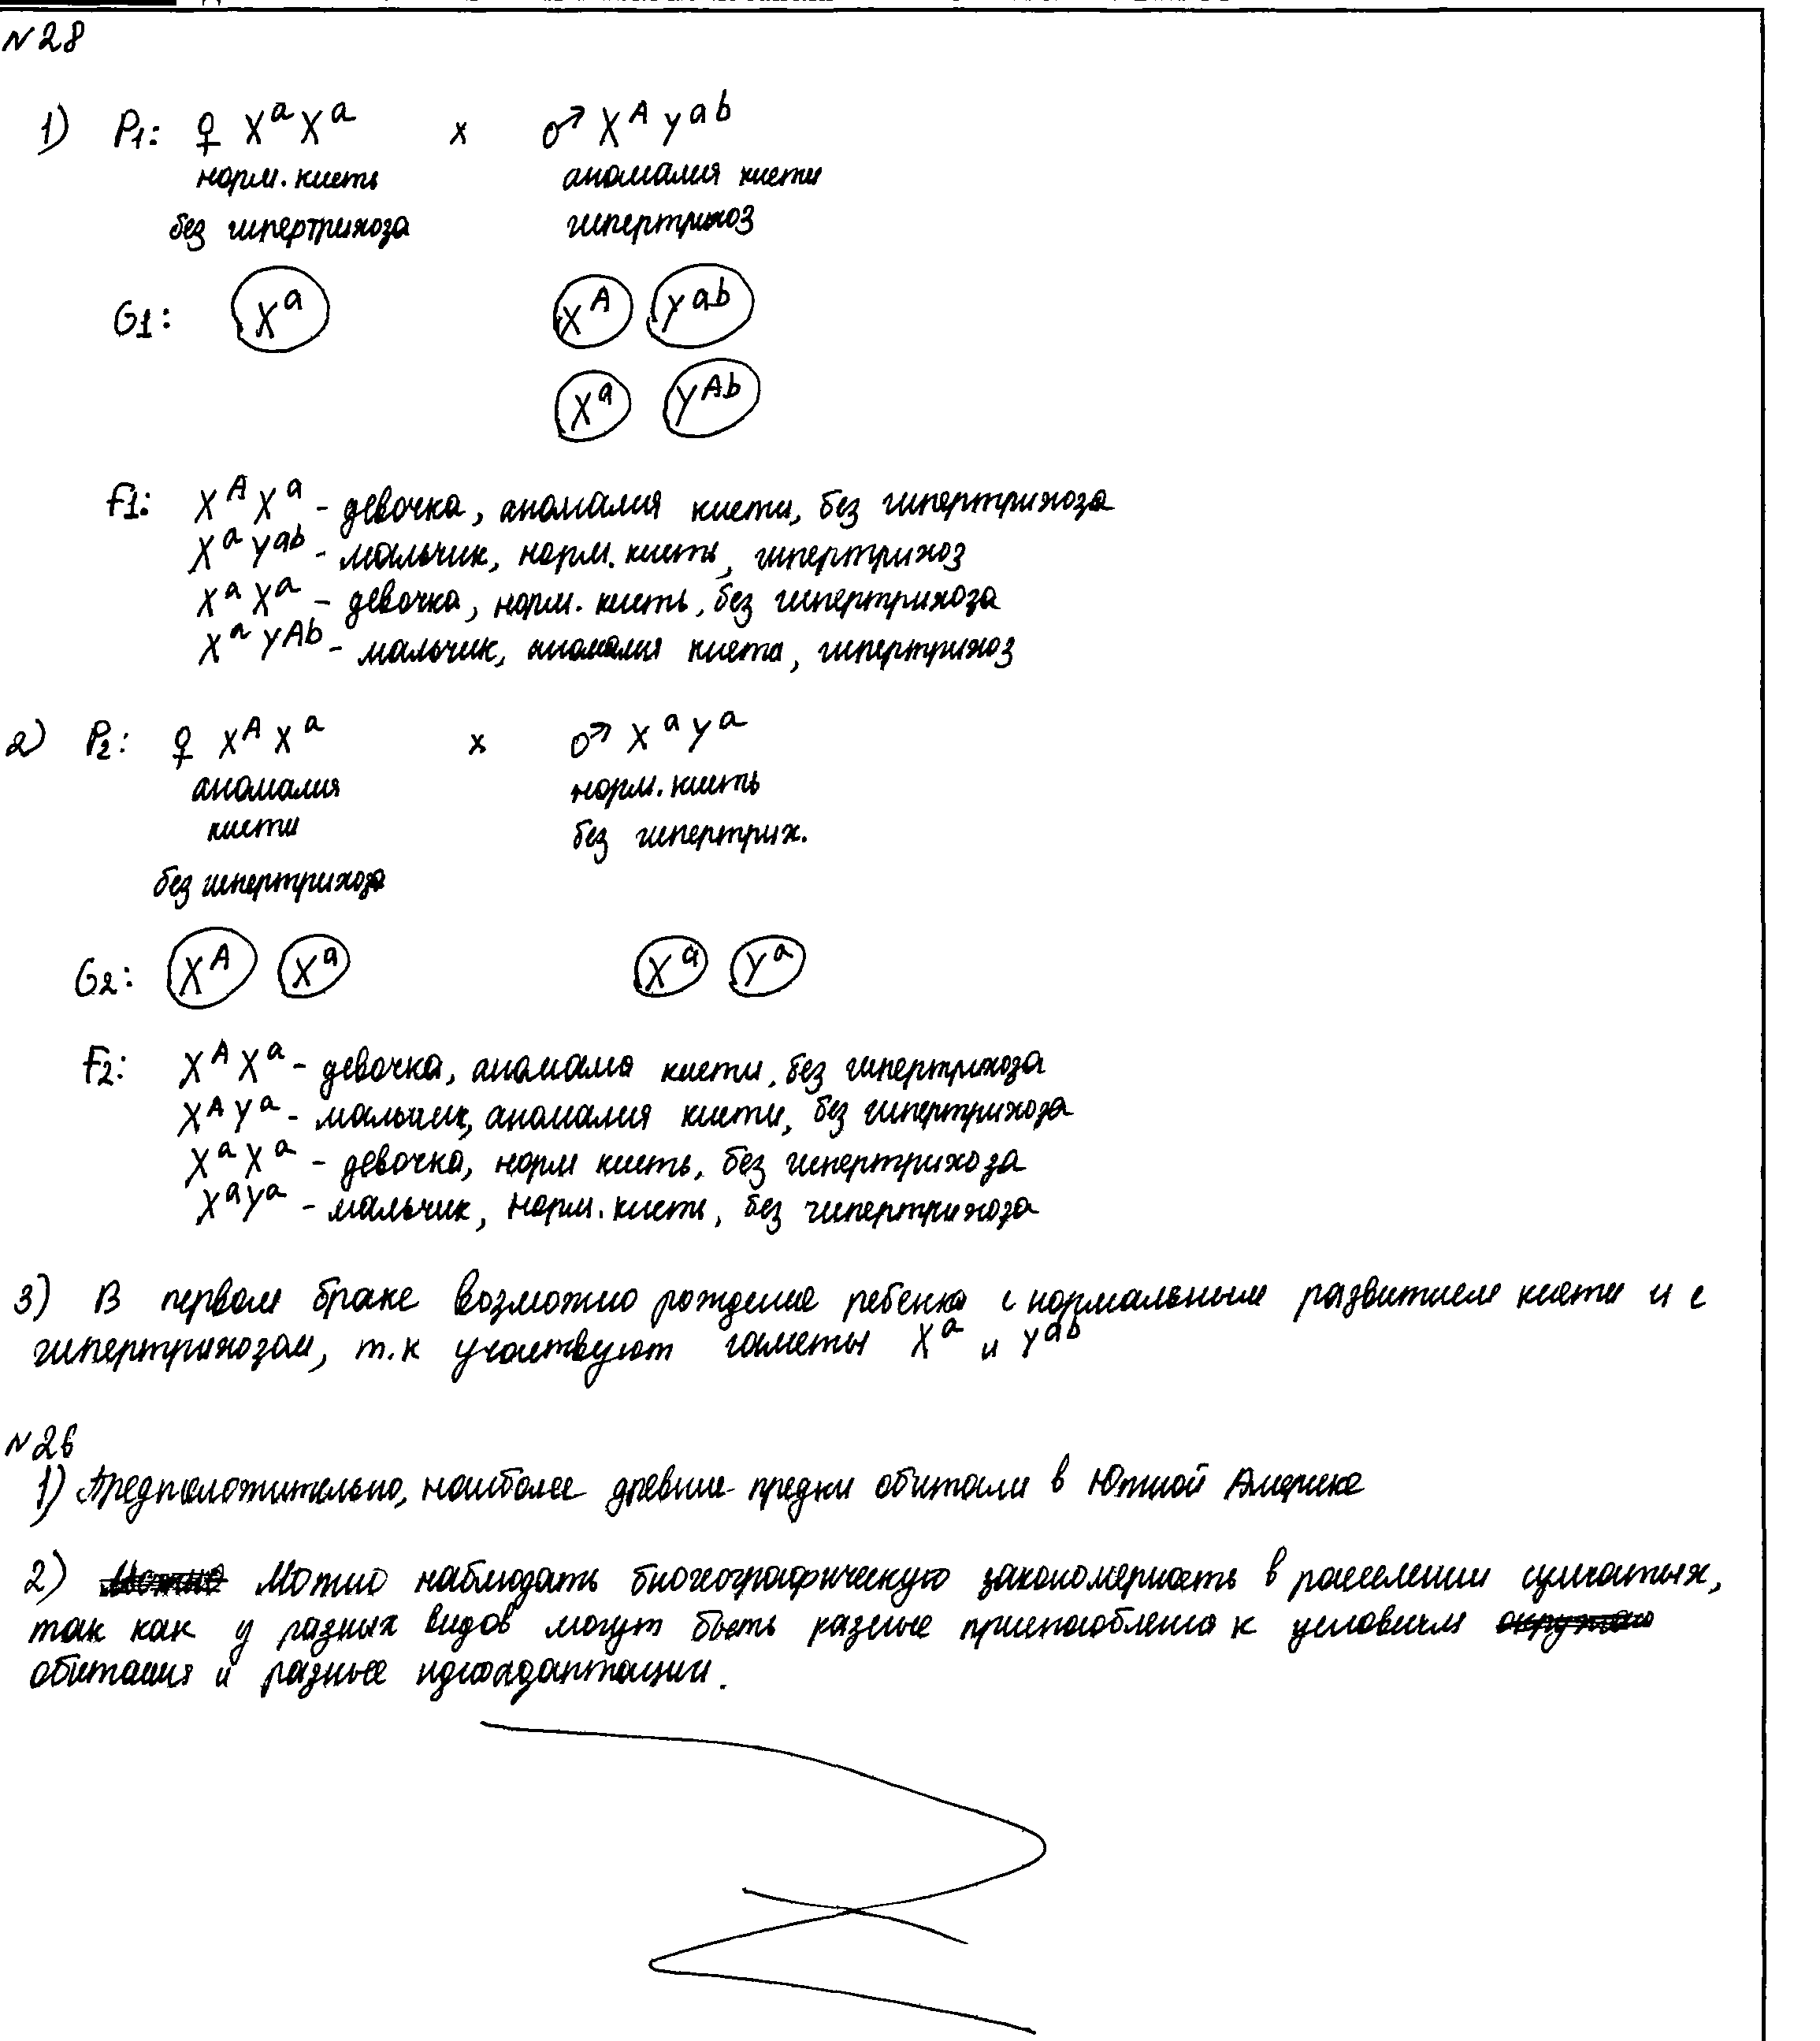 N28
1) P1: ♀ XᵃXᵃ x ♂ XᴬYᵃᵇ
норм. кисть аномалия кисти
без гипертрихоза гипертрихоз
G1: Xᵃ Xᴬ Yᵃᵇ
Xᵃ Yᴬᵇ
F1: XᴬXᵃ - девочка, аномалия кисти, без гипертрихоза
XᵃYᵃᵇ - мальчик, норм. кисть, гипертрихоз
XᵃXᵃ - девочка, норм. кисть, без гипертрихоза
XᵃYᴬᵇ - мальчик, аномалия кисти, гипертрихоз
2) P2: ♀ XᴬXᵃ x ♂ XᵃYᵃ
аномалия норм. кисть
кисти без гипертрих.
без гипертрихоза
G2: Xᴬ Xᵃ Xᵃ Yᵃ
F2: XᴬXᵃ - девочка, аномалия кисти, без гипертрихоза
XᴬYᵃ - мальчик, аномалия кисти, без гипертрихоза
XᵃXᵃ - девочка, норм кисть, без гипертрихоза
XᵃYᵃ - мальчик, норм. кисть, без гипертрихоза
3) В первом браке возможно рождение ребенка с нормальным развитием кисти и с
гипертрихозом, т.к участвуют гаметы Xᵃ и Yᵃᵇ
N26
1) Предположительно, наиболее древние предки обитали в Южной Америке
2) Можно наблюдать биогеографическую закономерность в расселении сумчатых,
так как у разных видов могут быть разные приспособления к условиям
обитания и разные идиоадаптации.